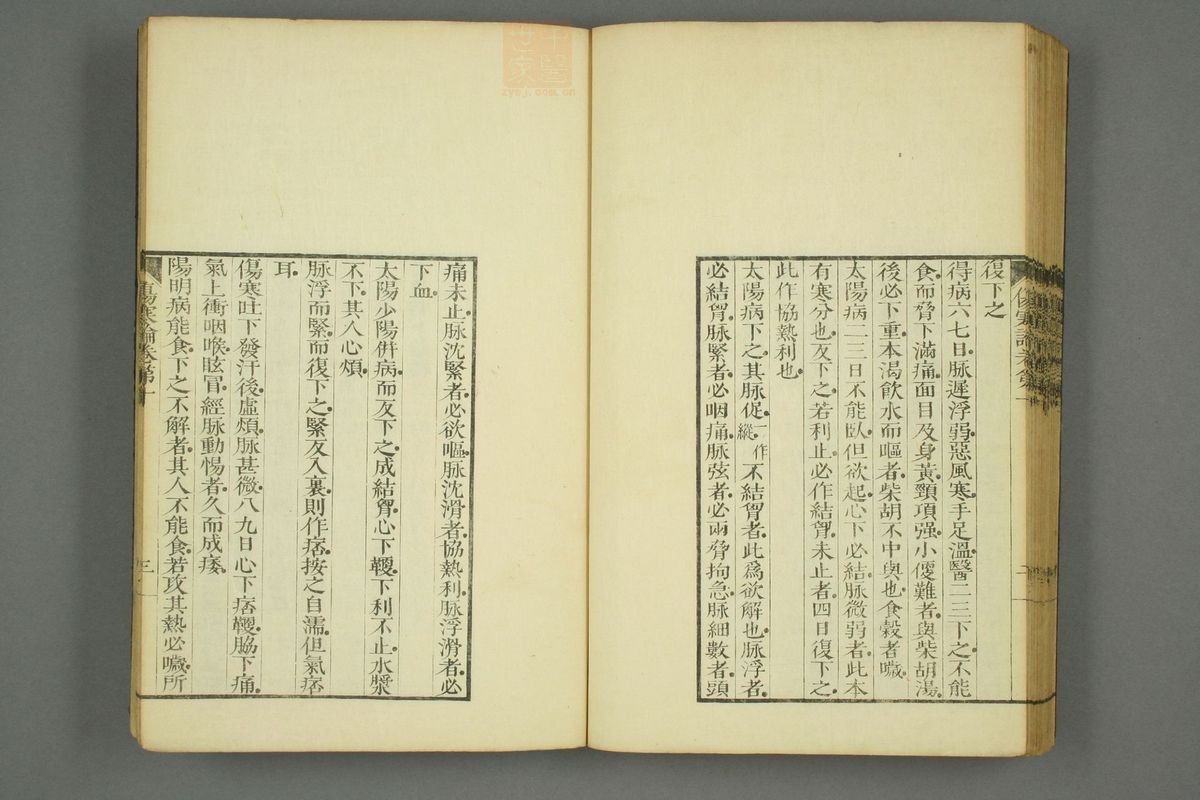 復下之
得病六七日。脉遲浮弱。惡風寒。手足溫。醫二三下之。不能
食。而脅下滿痛。面目及身黃。頸項强。小便難者。與柴胡湯。
後必下重。本渴飲水而嘔者。柴胡不中與也。食穀者噦。
太陽病二三日。不能臥。但欲起。心下必結。脉微弱者。此本
有寒分也。反下之。若利止。必作結胷。未止者。四日復下之。
此作協熱利也。
太陽病下之。其脉促。一作縱。不結胷者。此爲欲解也。脉浮者。
必結胷。脉緊者。必咽痛。脉弦者。必兩脅拘急。脉細數者。頭
痛未止。脉沈緊者。必欲嘔。脉沈滑者。協熱利。脉浮滑者。必
下血。
太陽少陽併病。而反下之。成結胷。心下鞕。下利不止。水漿
不下。其人心煩。
脉浮而緊。而復下之。緊反入裏。則作痞。按之自濡。但氣痞
耳。
傷寒吐下發汗後。虛煩。脉甚微。八九日心下痞鞕。脇下痛。
氣上衝咽喉。眩冒。經脉動惕者。久而成痿。
陽明病能食。下之不解者。其人不能食。若攻其熱必噦。所
傷寒論卷第十
三
中醫
世家
zysj.com.cn